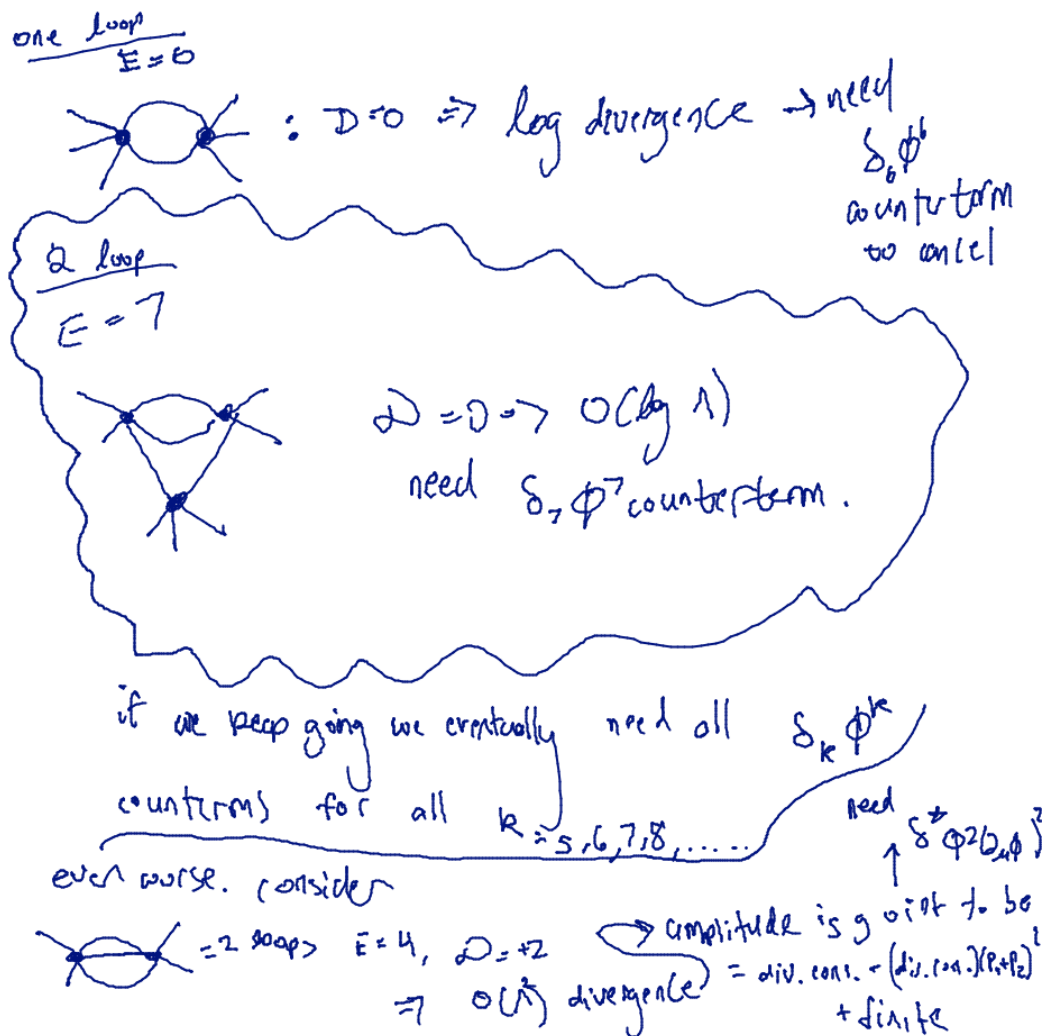 one loop
E=6
: D=0 ⇒ log divergence → need
δ₆ϕ⁶
counterterm
to cancel
2 loop
E=7
D=0 → O(log Λ)
need δ₇ϕ⁷ counterterm.
if we keep going we eventually need all δₖϕᵏ
counterms for all k=5,6,7,8,.....
need δ* ϕ²(∂μϕ)²
even worse. consider
= 2 loops E=4, D=+2
⇒ O(Λ²) divergence
amplitude is goint to be
= div. cons. + (div. con.)(P₁+P₂)²
+ finite